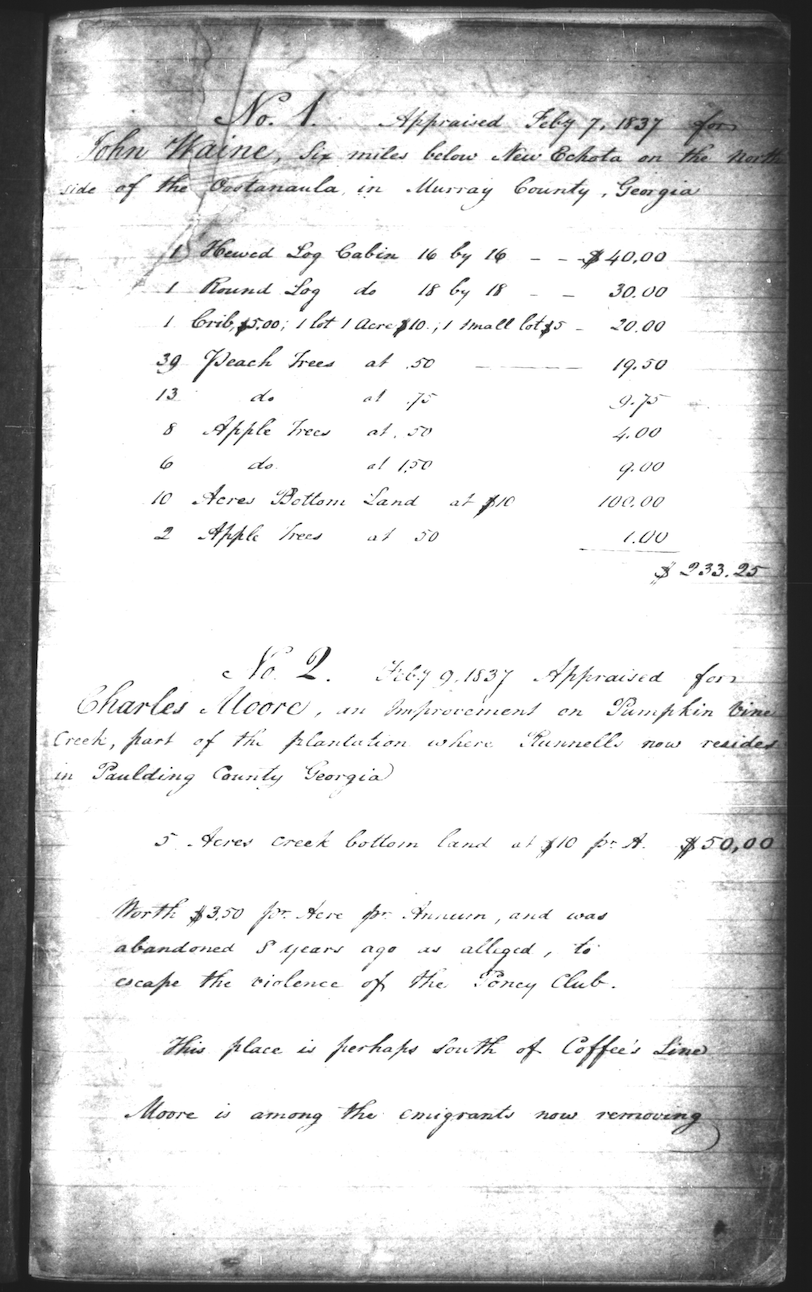 No. 1. Appraised Feby 7, 1837 for
John Waine, Six miles below New Echota on the North
side of the Oostanaula, in Murray County, Georgia
1 Hewed Log Cabin 16 by 16 - - - $40.00
1 Round Log do 18 by 18 - - 30.00
1 Crib, $5.00; 1 lot 1 Acre $10.; 1 Small lot $5 - 20.00
39 Peach Trees at .50 19.50
13 do at .75 9.75
8 Apple Trees at .50 4.00
6 do. at 1.50 9.00
10 Acres Bottom Land at $10 100.00
2 Apple Trees at 50 1.00
$ 233.25
No. 2. Feby 9, 1837 Appraised for
Charles Moore, an Improvement on Pumpkin Vine
Creek, part of the plantation where Runnells now resides
in Paulding County Georgia
5 Acres creek bottom land at $10 pr. A. $50,00
Worth $3.50 pr. Acre pr. Annum, and was
abandoned 5 years ago as alleged, to
escape the violence of the Poney Club.
This place is perhaps South of Coffee's Line
Moore is among the emigrants now removing